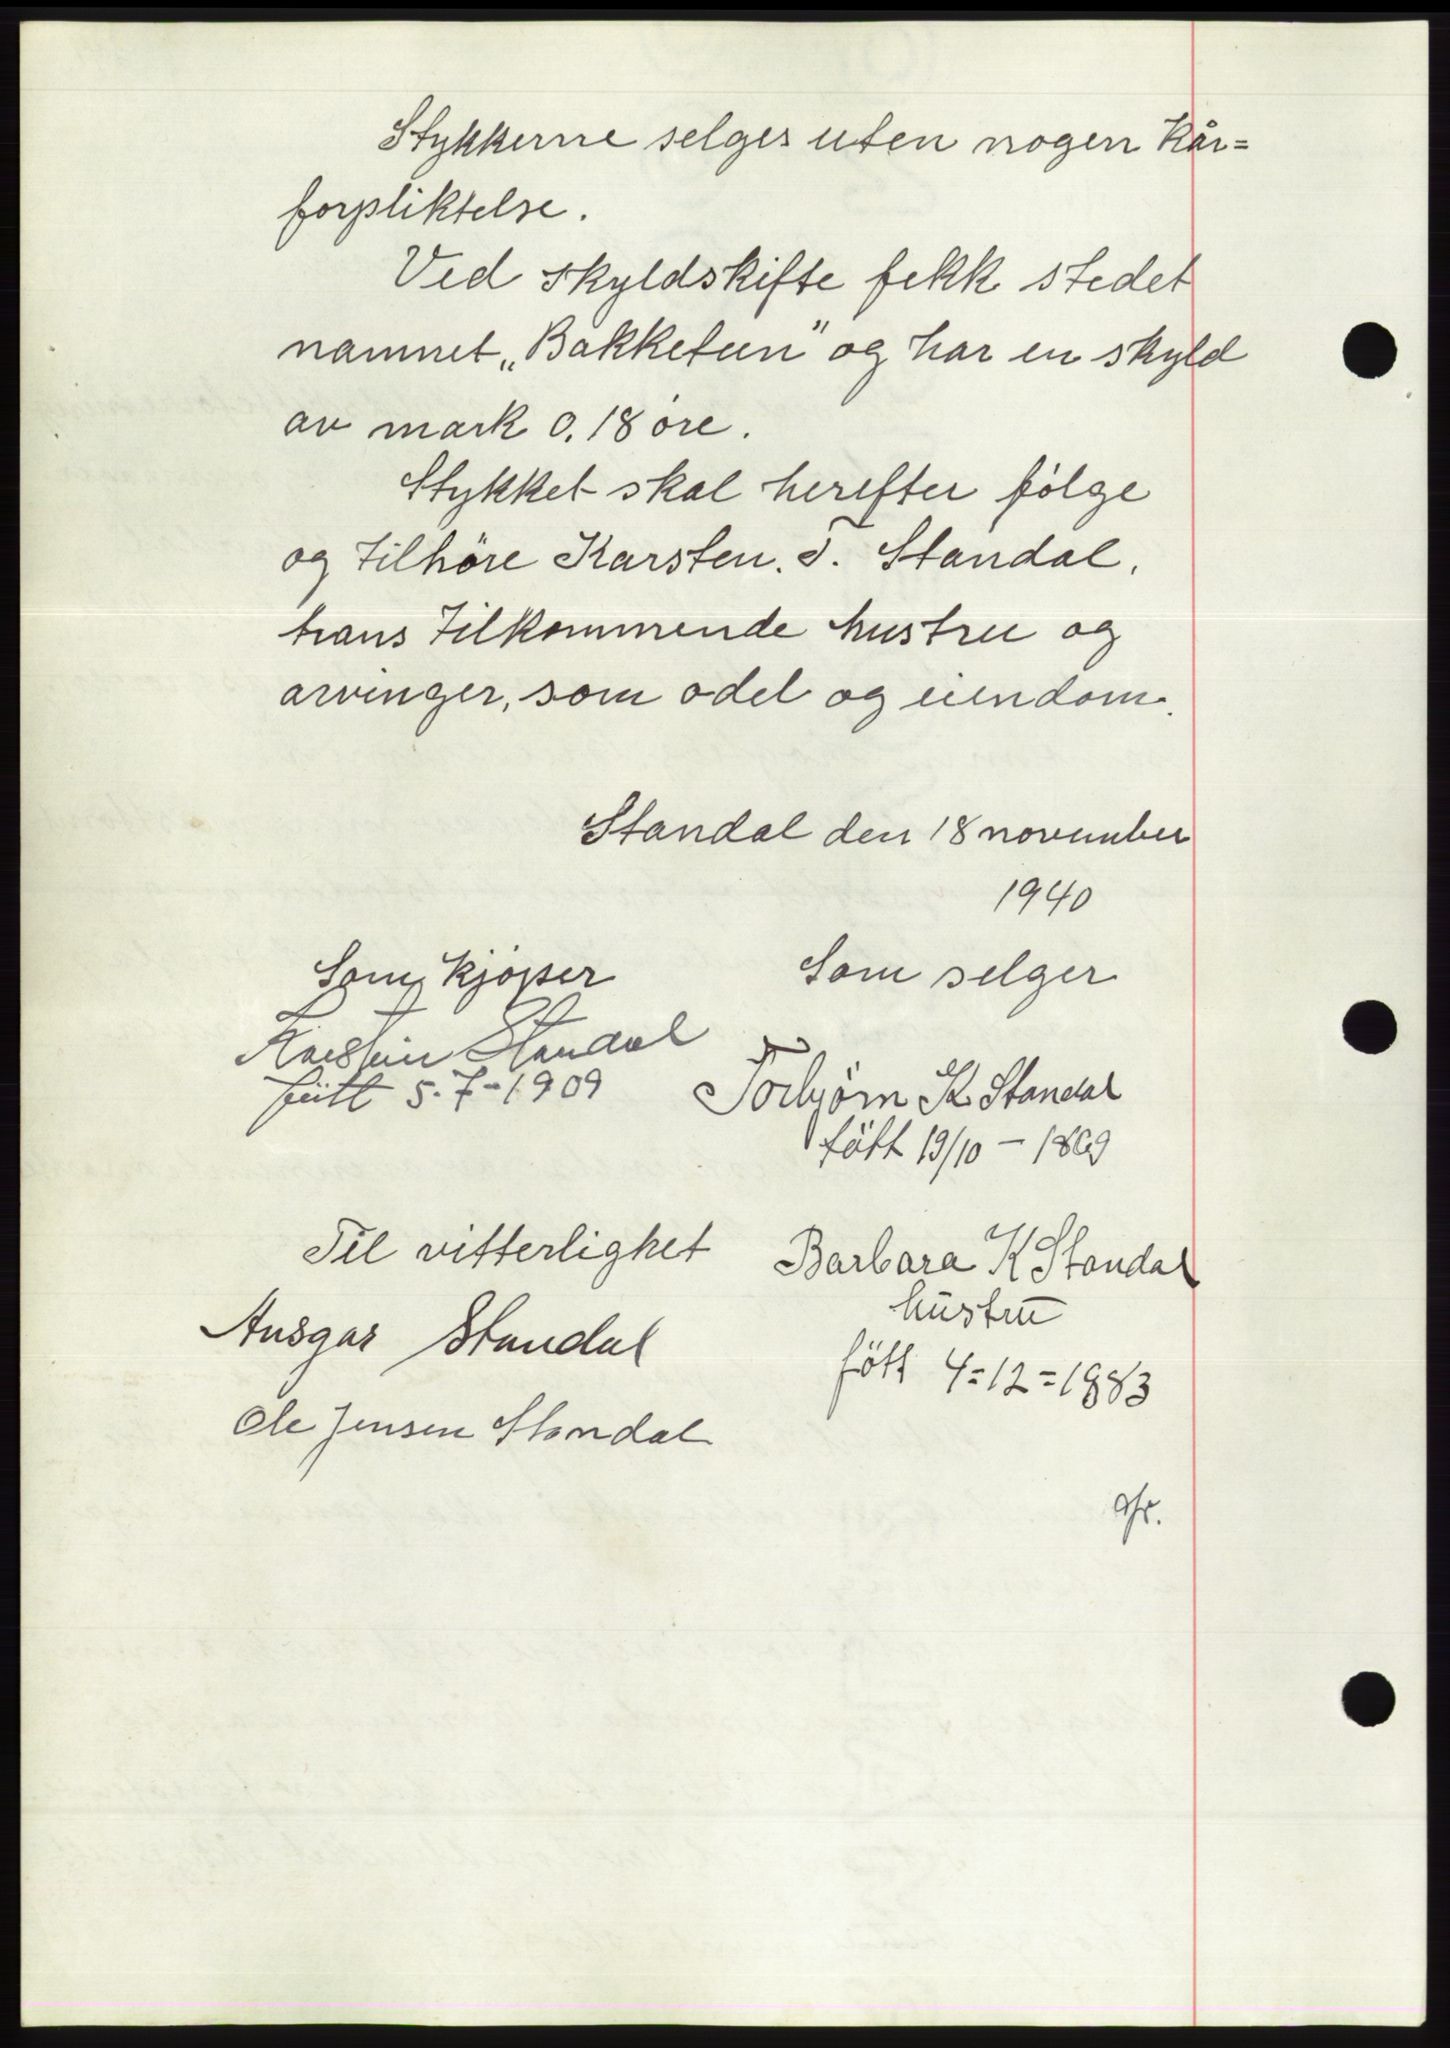 Stykkerne selges uten nogen kår=
forpliktelse.
Ved skyldskifte fekk stedet
namnet „Bakketun" og har en skyld
av mark 0.18 øre.
Stykket skal herefter følge
og tilhöre Karsten. T. Standal.
hans tilkommende hustru og
arvinger, som odel og eiendom.
Standal den 18 november
1940
Som kjøper
Som selger
Karsten Standal
født 5-7-1909
Torbjørn K Standal
fött 19/10 - 1869
Til vitterlighet
Barbara K Standal
hustru
fött 4=12=1883
Ansgar Standal
Ole Jensen Standal